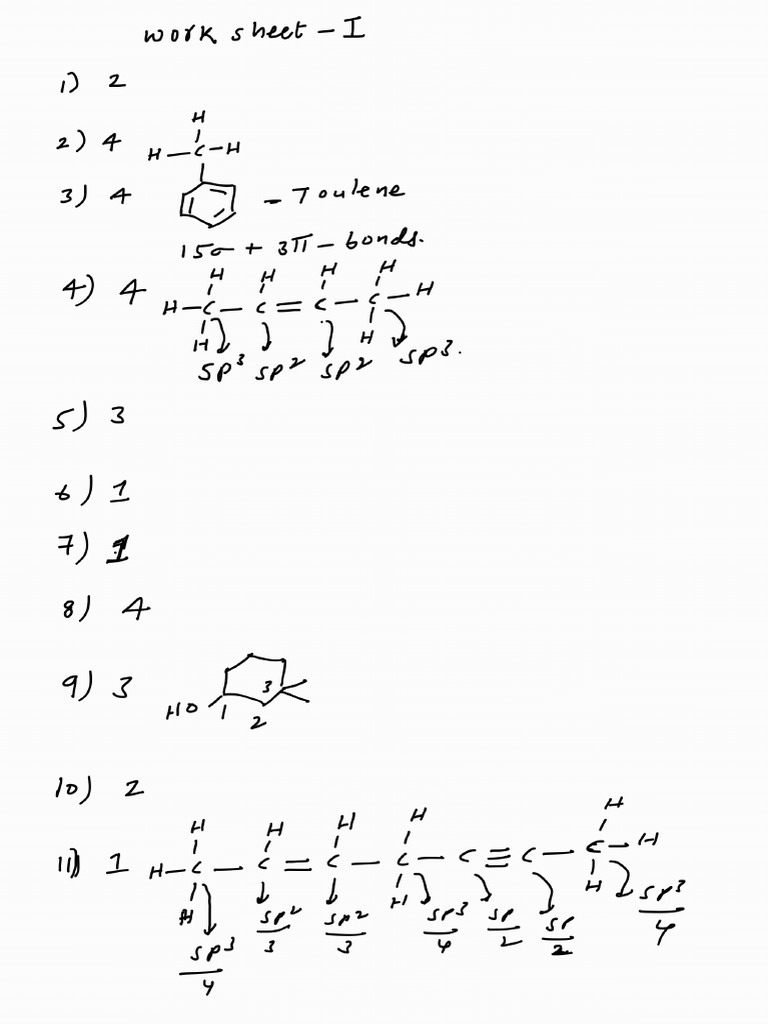 work sheet - I
1) 2
H
2) 4 H-C-H
3) 4 - Toulene
15σ + 3π - bonds.
H H H H
4) 4 H-C-C=C-C-H
H H
SP3 SP2 SP2 SP3.
5) 3
6) 1
7) 1
8) 4
9) 3 HO 1 2 3
10) 2
H H H H H
11) 1 H-C-C=C-C-C≡C-C-H
H H H
SP3/4 SP2/3 SP2/3 SP3/4 SP/2 SP/2 SP3/4